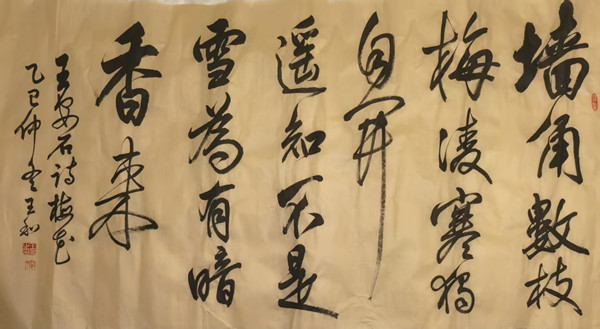 墙角數枝
梅凌寒獨
自開
遥知不是
雪為有暗
香来
王安石詩梅花
乙巳仲冬王和